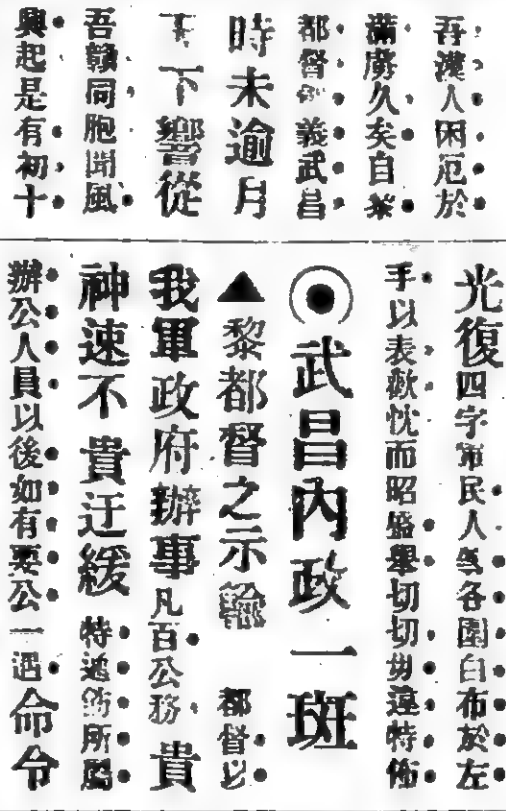 吾漢人困厄於
滿廣久矣自黎
都督起義武昌
時未逾月
天下響從
吾贛同胞聞風
興起是有初十
光復四字軍民人等各園白布於左
手以表歡忱而昭盛舉切切毋違特佈
武昌內政一斑
▲黎都督之示諭 都督以
我軍政府辦事凡百公務貴
神速不貴迂緩 特通飭所屬
辦公人員以後如有要公一遇命令